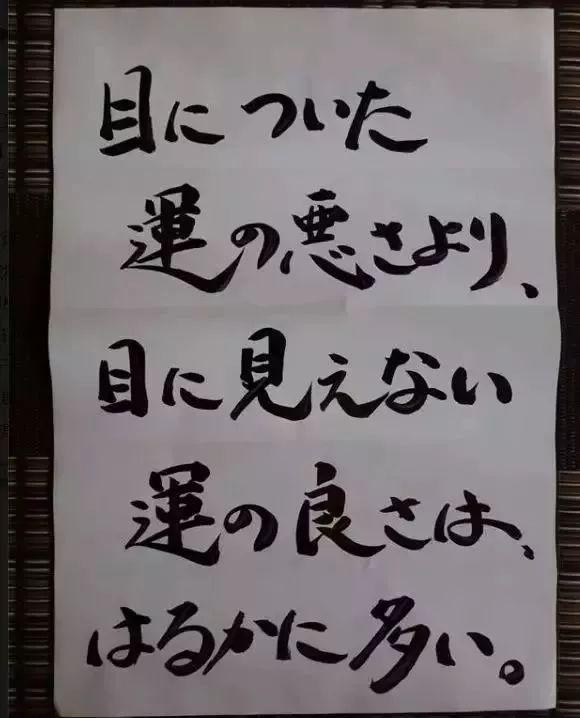 目についた
運の悪さより、
目に見えない
運の良さは、
はるかに多い。